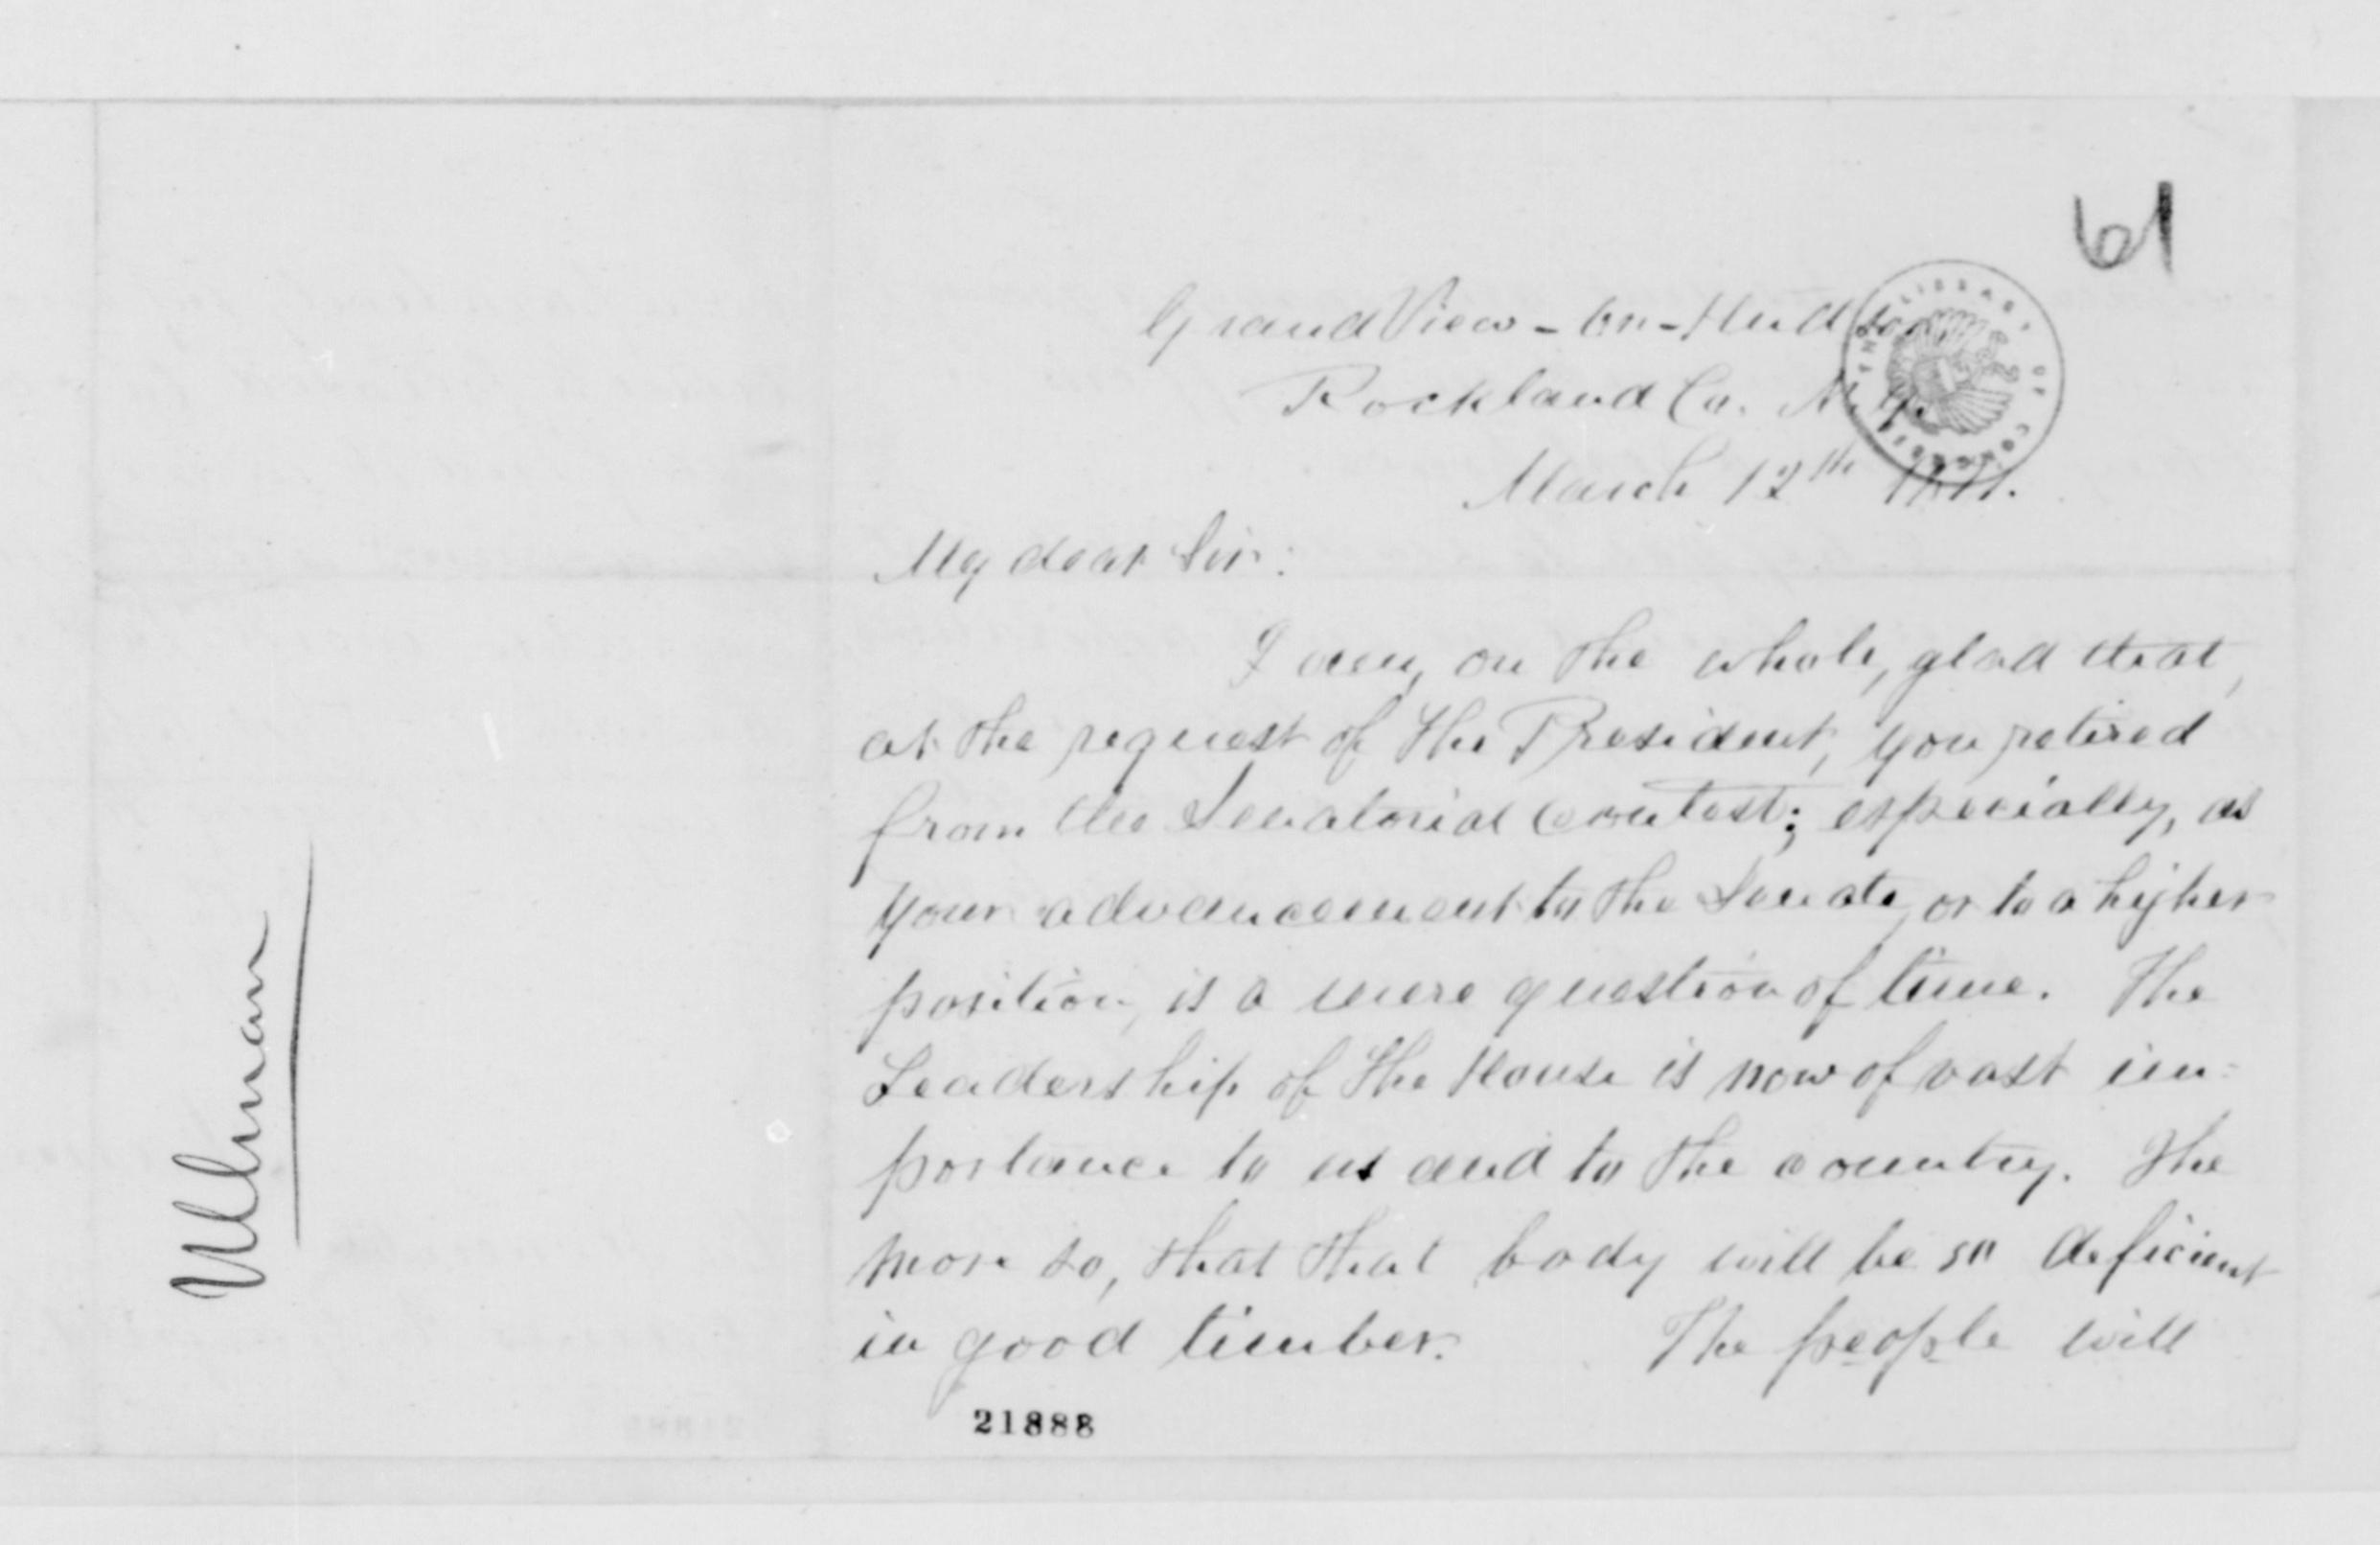 61
Grand View-On-Hudson
Rockland Co. N.Y.
March 12th 1877.
My dear Sir:
I am, on the whole, glad that,
at the request of the President, you retired
from the Senatorial Contest; especially, as
your advancement to the Senate, or to a higher
position, is a mere question of time. The
Leadership of the House is now of vast im-
portance to us and to the country. The
more so, that that body will be so deficient
in good timber. The people will
21888
Ullmann
THE LIBRARY OF CONGRESS